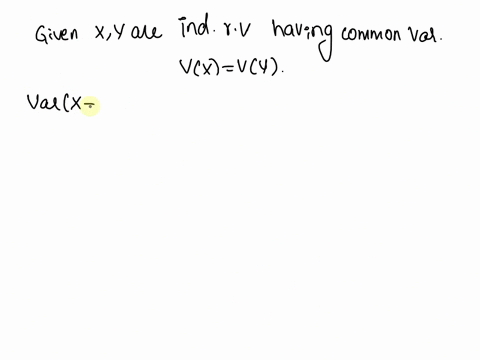 Given X, Y are ind. r.v having common var.
V(X)=V(Y).
Var(X-